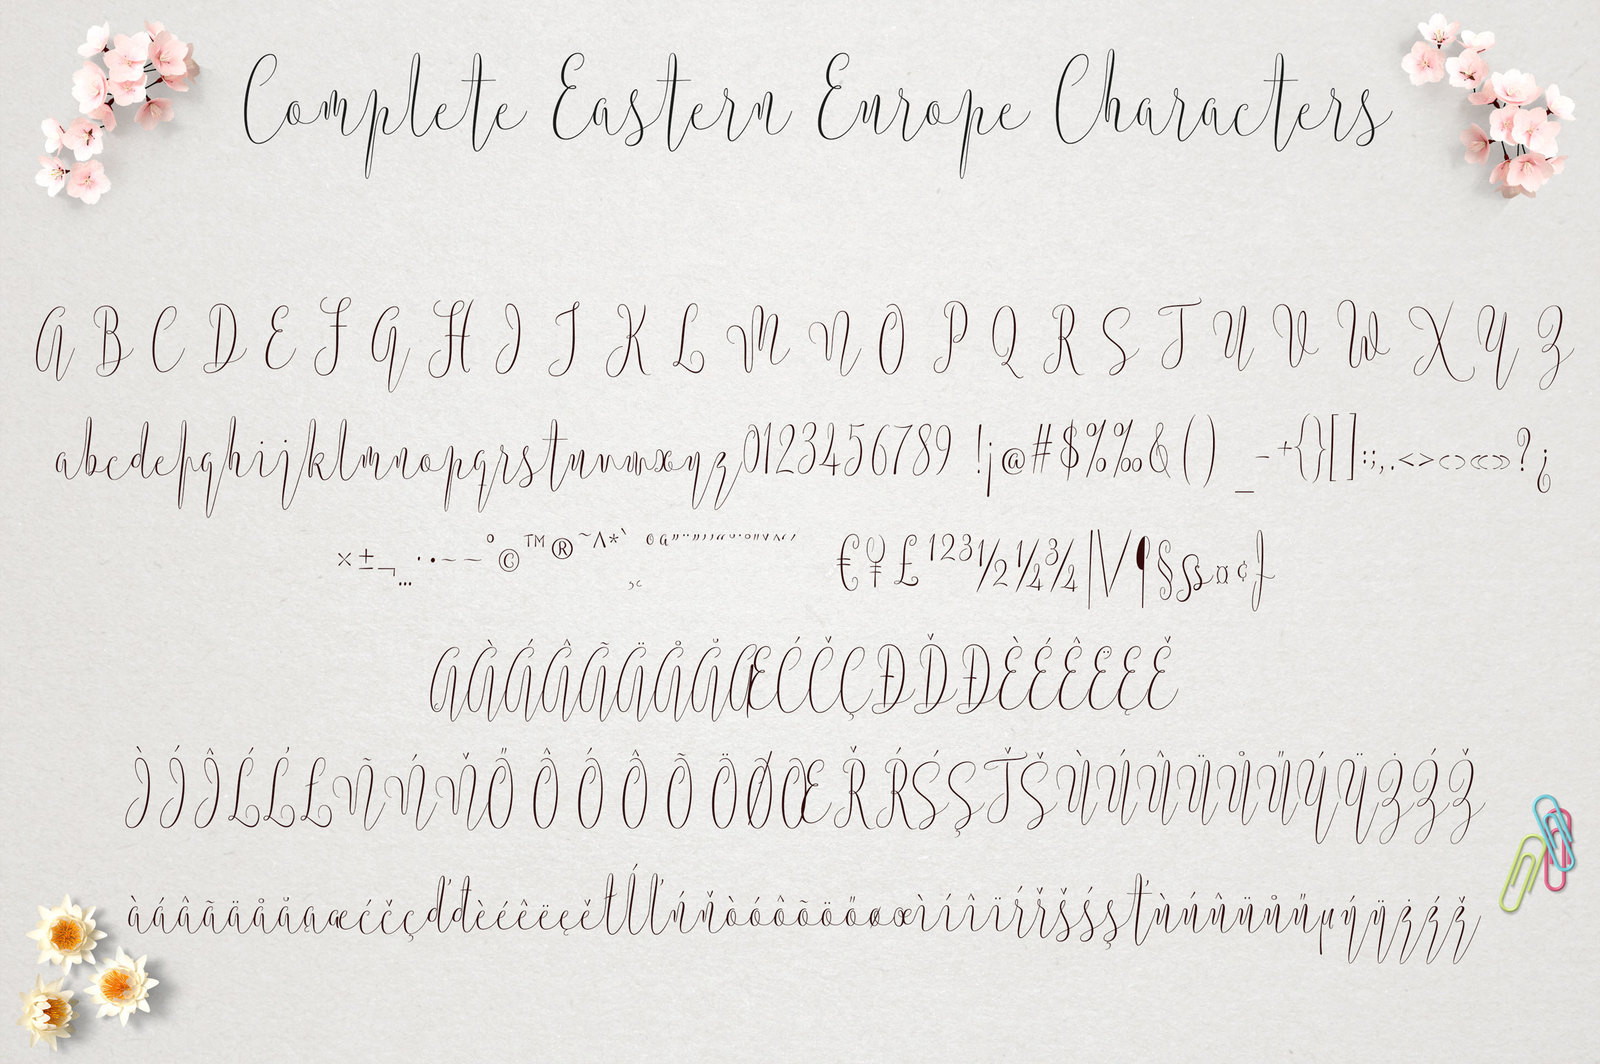 Complete Eastern Europe Characters
A B C D E F G H I J K L M N O P Q R S T U V W X Y Z
abcdefghijklmnopqrstuvwxyz0123456789 !¡@#$%‰&() _-+{}[]:;,.<>‹›«»?¿
×±¬…·•~–°©™®~^*`
€¥£¹²³½¼¾|\/¶§ß¤¢ƒ
ÀÁÂÃÄÅĂÆĆČÇĐĎÐÈÉÊËĘĚ
ÌÍÎĹĽŁÑŃŇŐÔÓÔÕÖØŒŘŔŚŞŤŠÙÚÛÜŮŰÝŸŻŹŽ
àáâãäåăąæćčçďđèéêëęětĺľńňòóôõöőøœìíîïŕřšśşťùúûüůűµýÿżźž